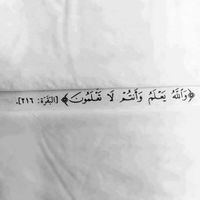 ﴿وَاللَّهُ يَعْلَمُ وَأَنتُمْ لَا تَعْلَمُونَ﴾ [البَقَرَة: ٢١٦].